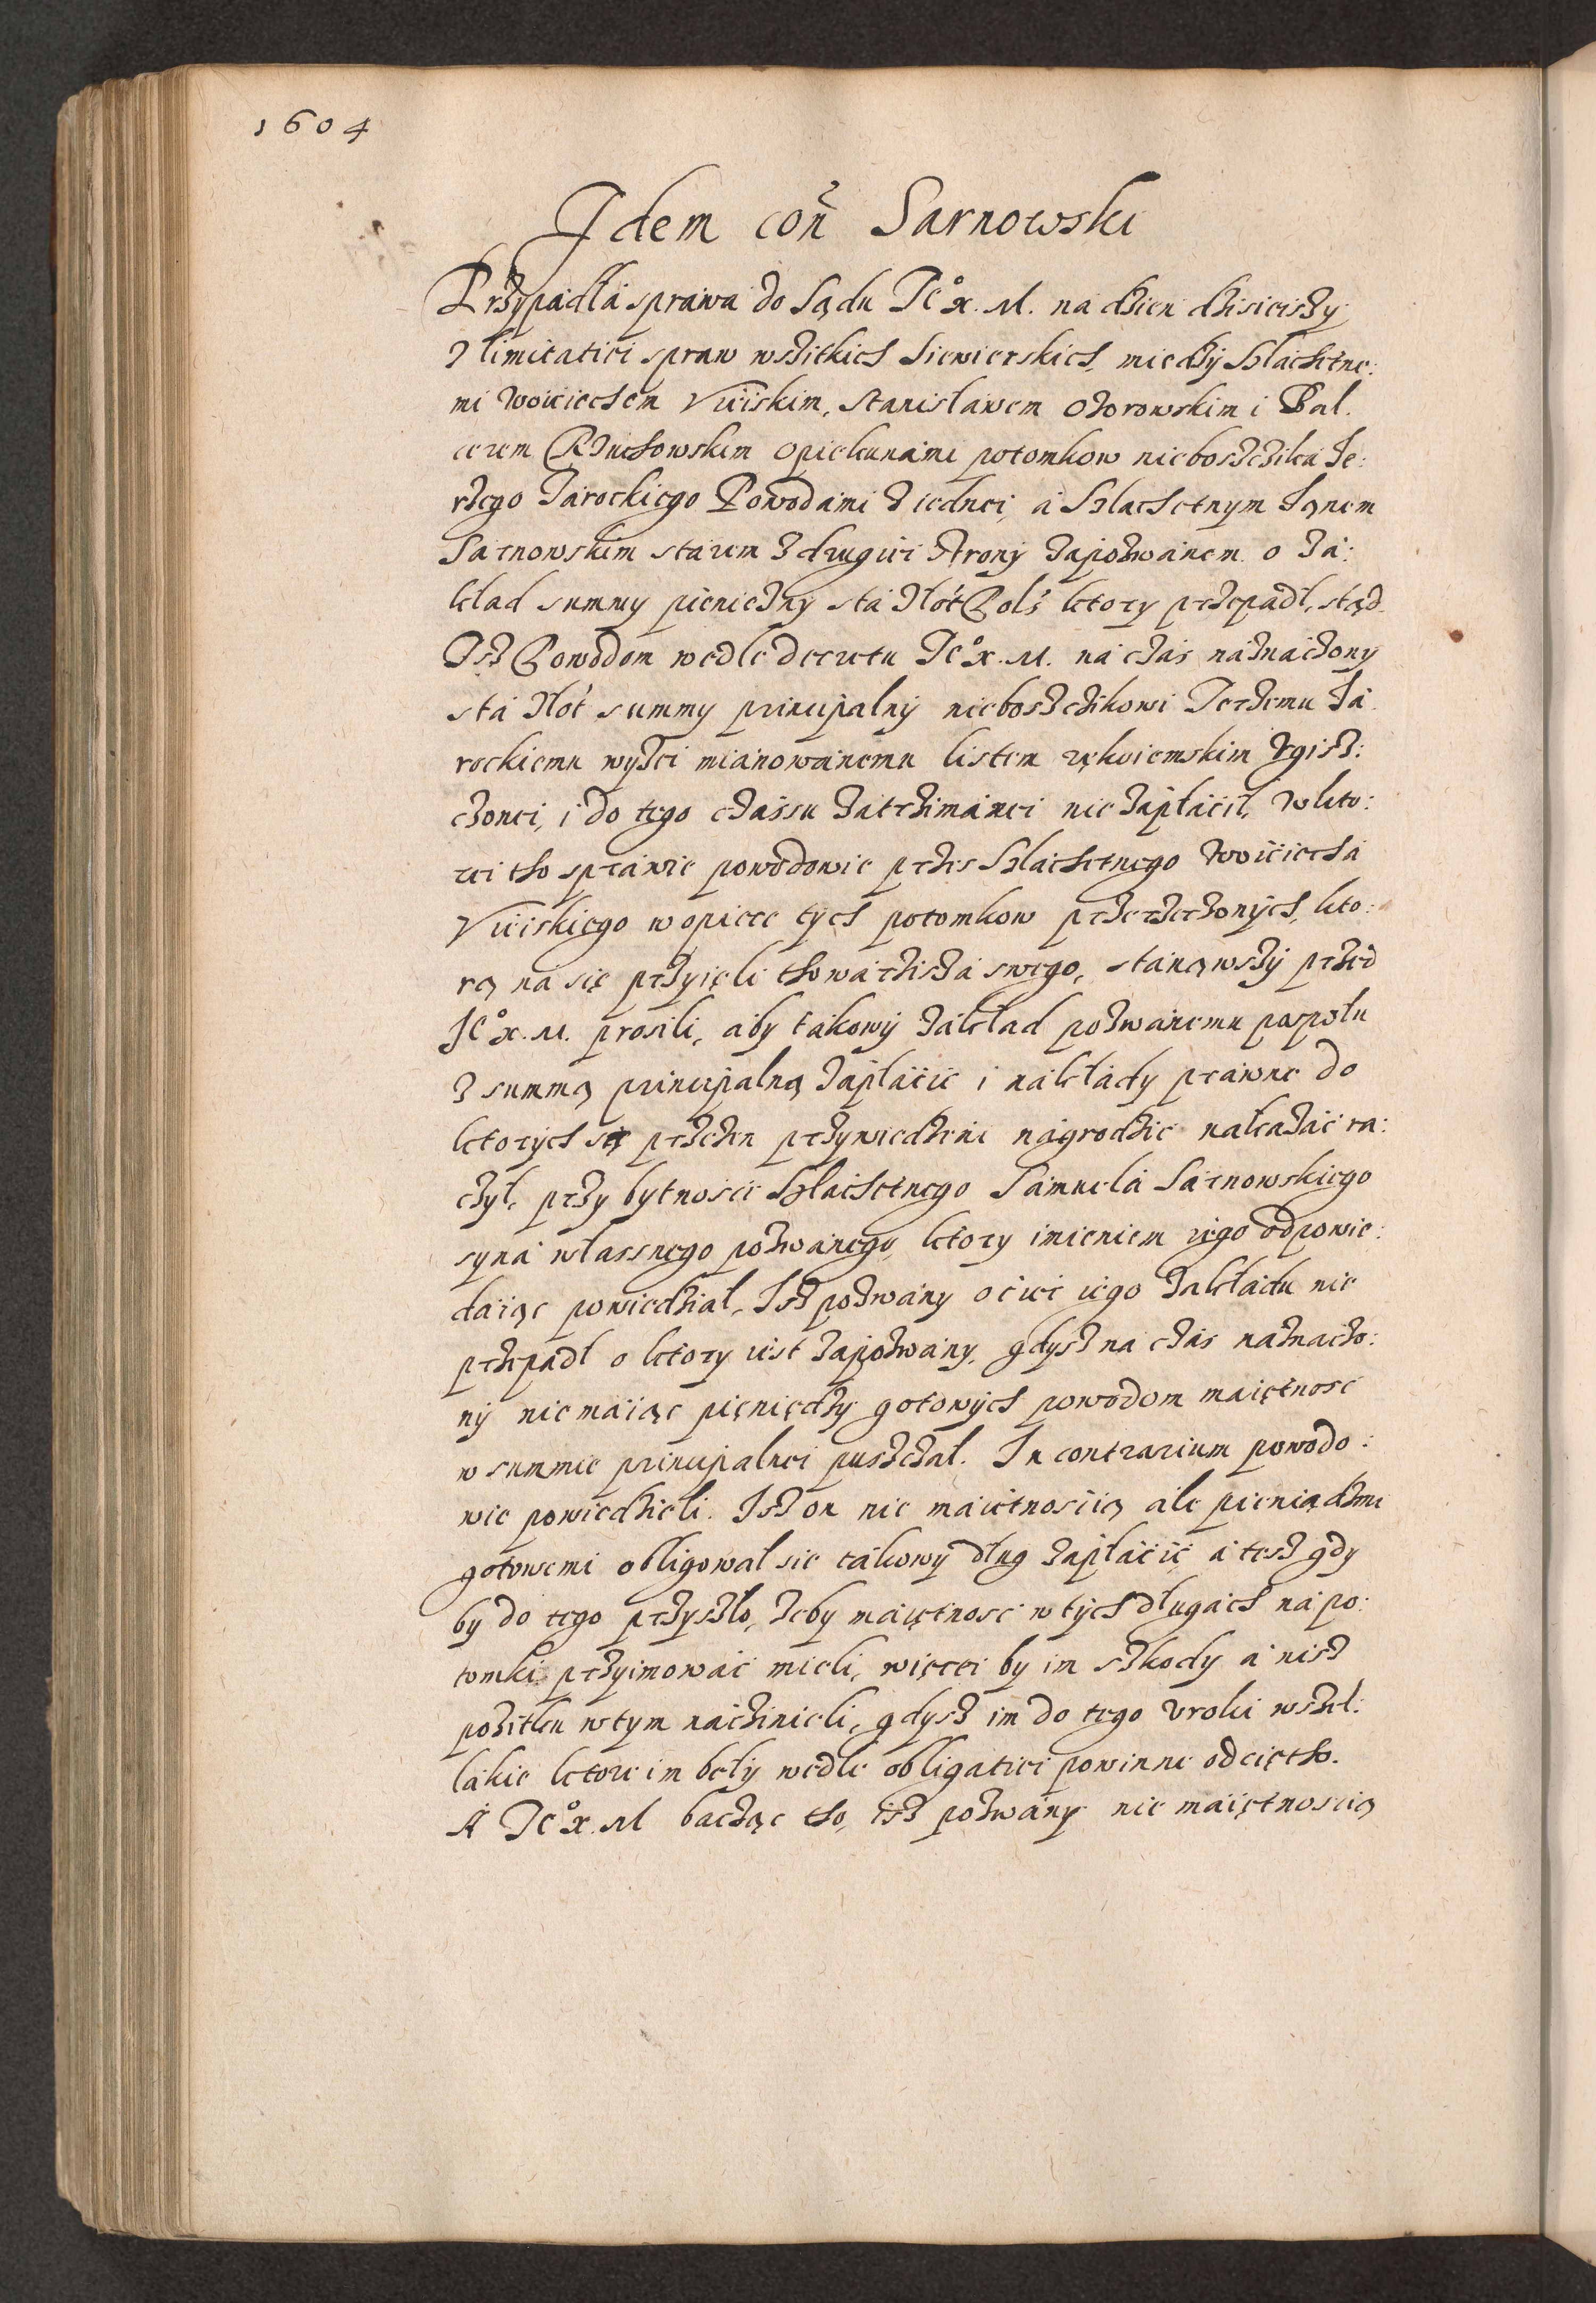 1604
Idem coñ Sarnowski
Przypadła sprawa do Sądu Jeº X. M. na dzien dzisieiszy
z limitatiei spraw wszitkich Siewierskich, między Szlachetne:
mi Woiciechem Vyiskim, Stanisławem Ożorowskim i Bal.
cerem Rzuchowskim opiekunami potomkow nieboszczika Je:
rzego Jarockiego Powodami z iednei, a Szlachetnym Janem
Sarnowskim starem z drugiei strony zapozwanem o za:
kład summy pieniezny sta złot Pols ktory przepadł, stąd
Isz Powodom wedle decretu Jeº X. M. na czas naznaczony
sta złot summy principalny nieboszczikowi Jerzemu Ja
rockiemu wyżei mianowanemu listem rękoiemskim zgisz:
czonei, i do tego czassu zatrzimanei nie zapłacił, w kto:
rei tho sprawie powodowie przes Szlachetnego Woiciecha
Vyiskiego w opiece tych potomkow przerzeczonych, kto:
rą na się przyięli thowarzisza swego, stanąwszy przed
Jeº X. M. prosili, aby takowy zakład pozwanemu pospołu
z summą principalną zapłacic i nakłady prawne do
ktorych są przezen przywiedzeni nagrodzic nakazać ra:
czył, przy bytnosci Szlachetnego Samuela Sarnowskiego
syna własznego pozwanego, ktory imieniem iego odpowie:
daiąc powiedział, Isz pozwany ociec iego zakładu nie
przepadł o ktory iest zapozwany, gdysz na czas naznaczo:
ny nie maiąc pieniędzy gotowych powodom maiętnosc
w summie principalnei puszczał. In contrarium powodo:
wie powiedzieli. Isz on nie maiętnoscią ale pieniądzmi
gotowemi obligował sie takowy dług zapłacić a tesz gdy
by do tego przyszło, żeby maiętnosc w tych długach na po:
tomki przyimować mieli, więcei by im szkody a nisz
pozitku w tym naczinieli, gdysz im do tego vroki wszel:
lakie ktore im beły wedle obligatiei powinne odcięto.
A Jeº X. M bacząc tho, isz pozwany nie maiętnoscią